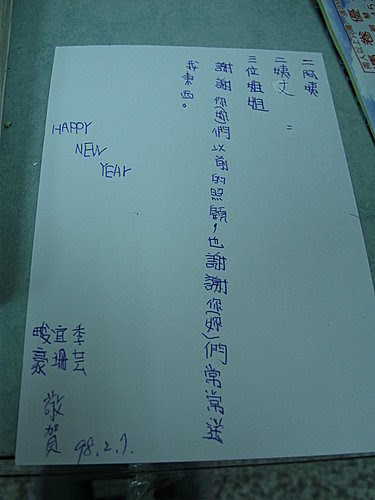 二阿姨
二姨丈：
三位姐姐
謝謝你您們以前的照顧，也謝謝您(妳)們常常送
我東西。
HAPPY
NEW
YEAR
季芸
宜珊
畯豪
敬賀
98.2.1.